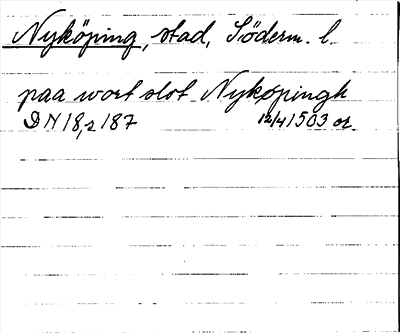 Nyköping, stad, Söderm. l.
paa wort slot Nykøpingh
DN 18, s 187 12/4 1503 or.